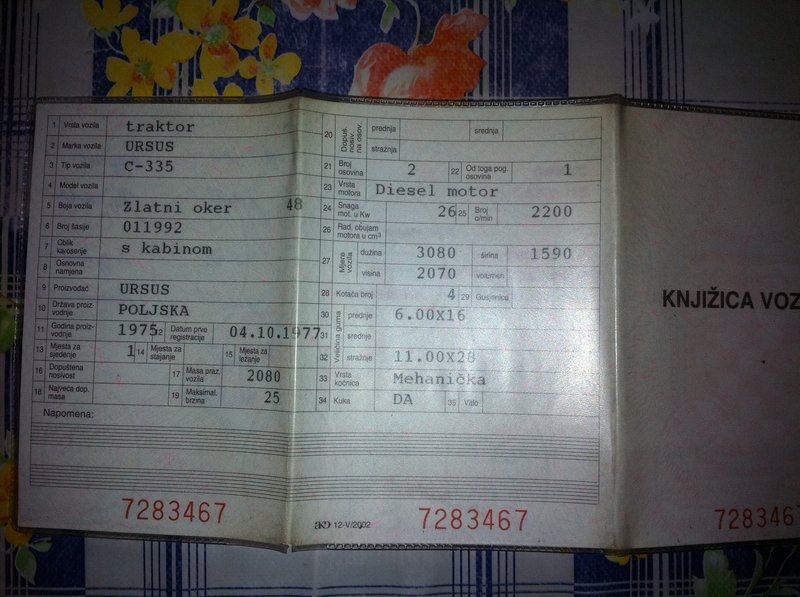 1 Vrsta vozila traktor
2 Marka vozila URSUS
3 Tip vozila C-335
4 Model vozila
5 Boja vozila Zlatni oker 48
6 Broj šasije 011992
7 Oblik karoserije s kabinom
8 Osnovna namjena
9 Proizvođač URSUS
10 Država proizvodnje POLJSKA
11 Godina proizvodnje 1975 12 Datum prve registracije 04.10.1977
13 Mjesta za sjedenje 1 14 Mjesta za stajanje 15 Mjesta za ležanje
16 Dopuštena nosivost 17 Masa praz. vozila 2080
18 Najveća dop. masa 19 Maksimal. brzina 25
Napomena:
7283467
20 Dopuš. nosiv. na osov. prednja srednja
stražnja
21 Broj osovina 2 22 Od toga pog. osovina 1
23 Vrsta motora Diesel motor
24 Snaga mot. u Kw 26 25 Broj o/min 2200
26 Rad. obujam motora u cm³
27 Mjere vozila dužina 3080 širina 1590
visina 2070 volumen
28 Kotača broj 4 29 Gusjenice
30 Veličina guma prednje 6.00X16
31 srednje
32 stražnje 11.00X28
33 Vrsta kočnica Mehanička
34 Kuka DA 35 Vitlo
AKD 12-V/2002
7283467
KNJIŽICA VOZ
728346